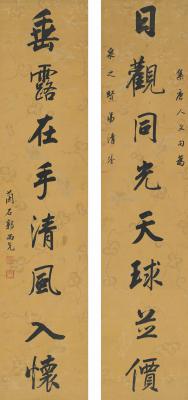 集唐人文句為
日觀同光天球並價
泉之賢弟清鑒
垂露在手清風入懷
蘭石郭尚先